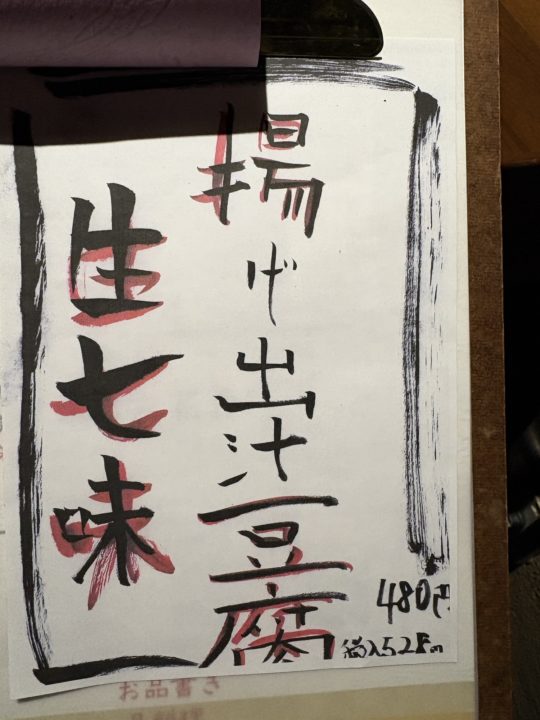 揚げ出汁豆腐
生七味
480円
税込528円
お品書き